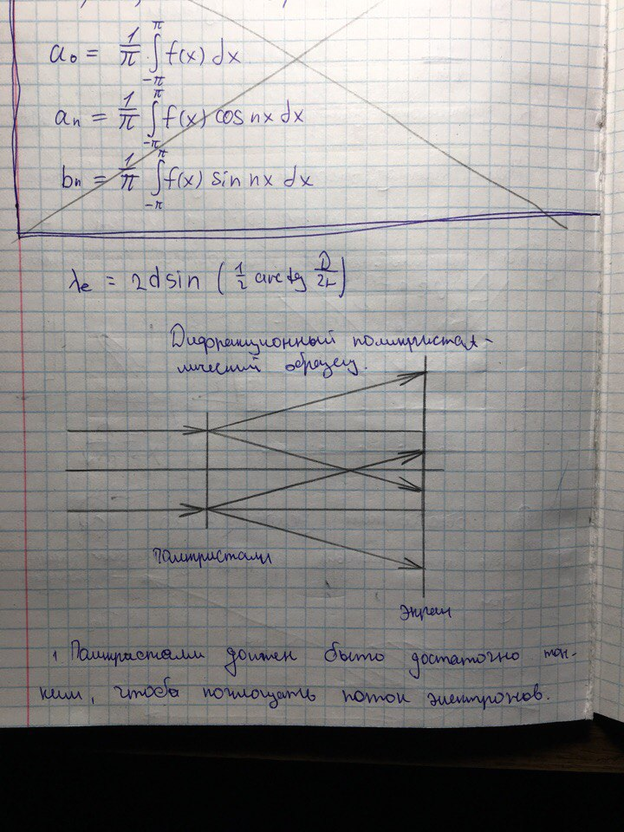 a₀ = 1/π ∫_{-π}^{π} f(x) dx
aₙ = 1/π ∫_{-π}^{π} f(x) cos nx dx
bₙ = 1/π ∫_{-π}^{π} f(x) sin nx dx
λe = 2d sin (1/2 arctg D/2L)
Дифракционный поликристал-
лический образец.
Поликристалл
Экран
1 Поликристалл должен быть достаточно тон-
ким, чтобы поглощать поток электронов.